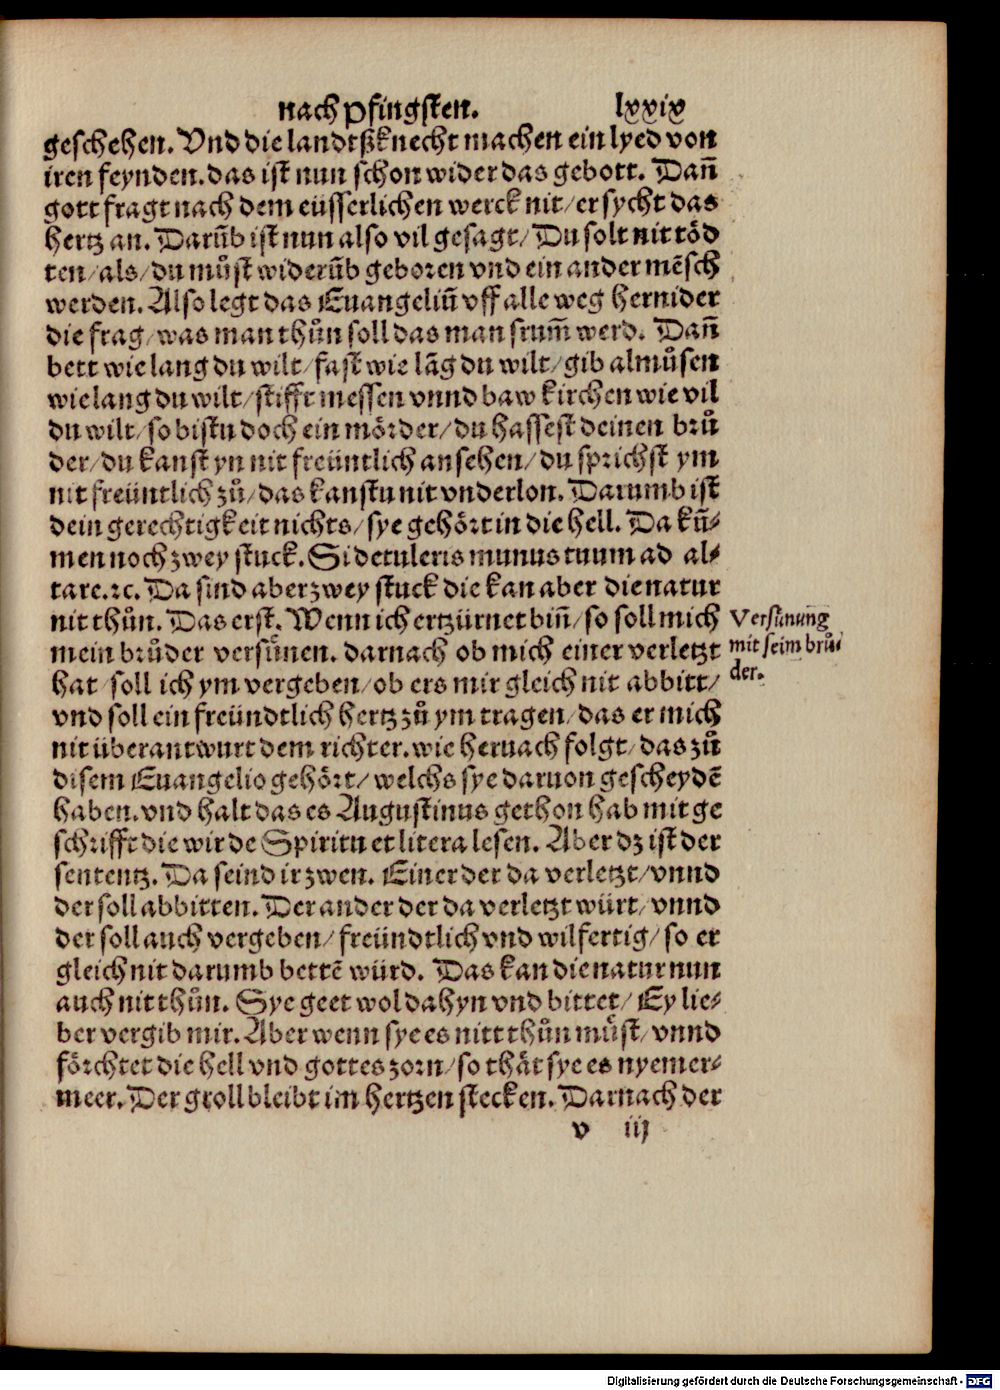 nach Pfingsten. lxxix
geschehen. Vnd die landtßknecht machen ein lyed von
iren feynden. das ist nun schon wider das gebott. Dañ
gott fragt nach dem eüsserlichen werck nit/ er sycht das
hertz an. Darũb ist nun also vil gesagt/ Du solt nit töd
ten/ als/ du můst widerũb geboren vnd ein ander mẽsch
werden. Also legt das Euangeliũ vff alle weg hernider
die frag/ was man thůn soll das man frum̃ werd. Dañ
bett wie lang du wilt/ fast wie lãg du wilt/ gib almůsen
wie lang du wilt/ stifft messen vnnd baw kirchen wie vil
du wilt/ so bistu doch ein mörder/ du hassest deinen brů
der/ du kanst yn nit freüntlich ansehen/ du sprichst ym
nit freüntlich zů/ das kanstu nit vnderlon. Darumb ist
dein gerechtigkeit nichts/ sye gehört in die hell. Da kũ⸗
men noch zwey stuck. Si detuleris munus tuum ad al⸗
tare. ⁊c. Da sind aber zwey stuck die kan aber die natur
nit thůn. Das erst. Wenn ich ertzürnet biñ/ so soll mich
mein brůder versünen. darnach ob mich einer verletzt
hat/ soll ich ym vergeben/ ob ers mir gleich nit abbitt/
vnd soll ein freündtlich hertz zů ym tragen/ das er mich
nit überantwurt dem richter. wie hernach folgt/ das zů
disem Euangelio gehört/ welchs sye daruon gescheydẽ
haben. vnd halt das es Augustinus gethon hab mit ge
schrifft die wir de Spiritu et litera lesen. Aber dz ist der
sententz. Da seind ir zwen. Einer der da verletzt/ vnnd
der soll abbitten. Der ander der da verletzt würt/ vnnd
der soll auch vergeben/ freündtlich vnd wilfertig/ so er
gleich nit darumb bettẽ würd. Das kan die natur nun
auch nit thůn. Sye geet wol dahyn vnd bittet/ Ey lie⸗
ber vergib mir. Aber wenn sye es nitt thůn můst/ vnnd
förchtet die hell vnd gottes zorn/ so thät sye es nyemer⸗
meer. Der groll bleibt im hertzen stecken. Darnach der
v iij
Versünung
mit seim brů⸗
der.
Digitalisierung gefördert durch die Deutsche Forschungsgemeinschaft - DFG